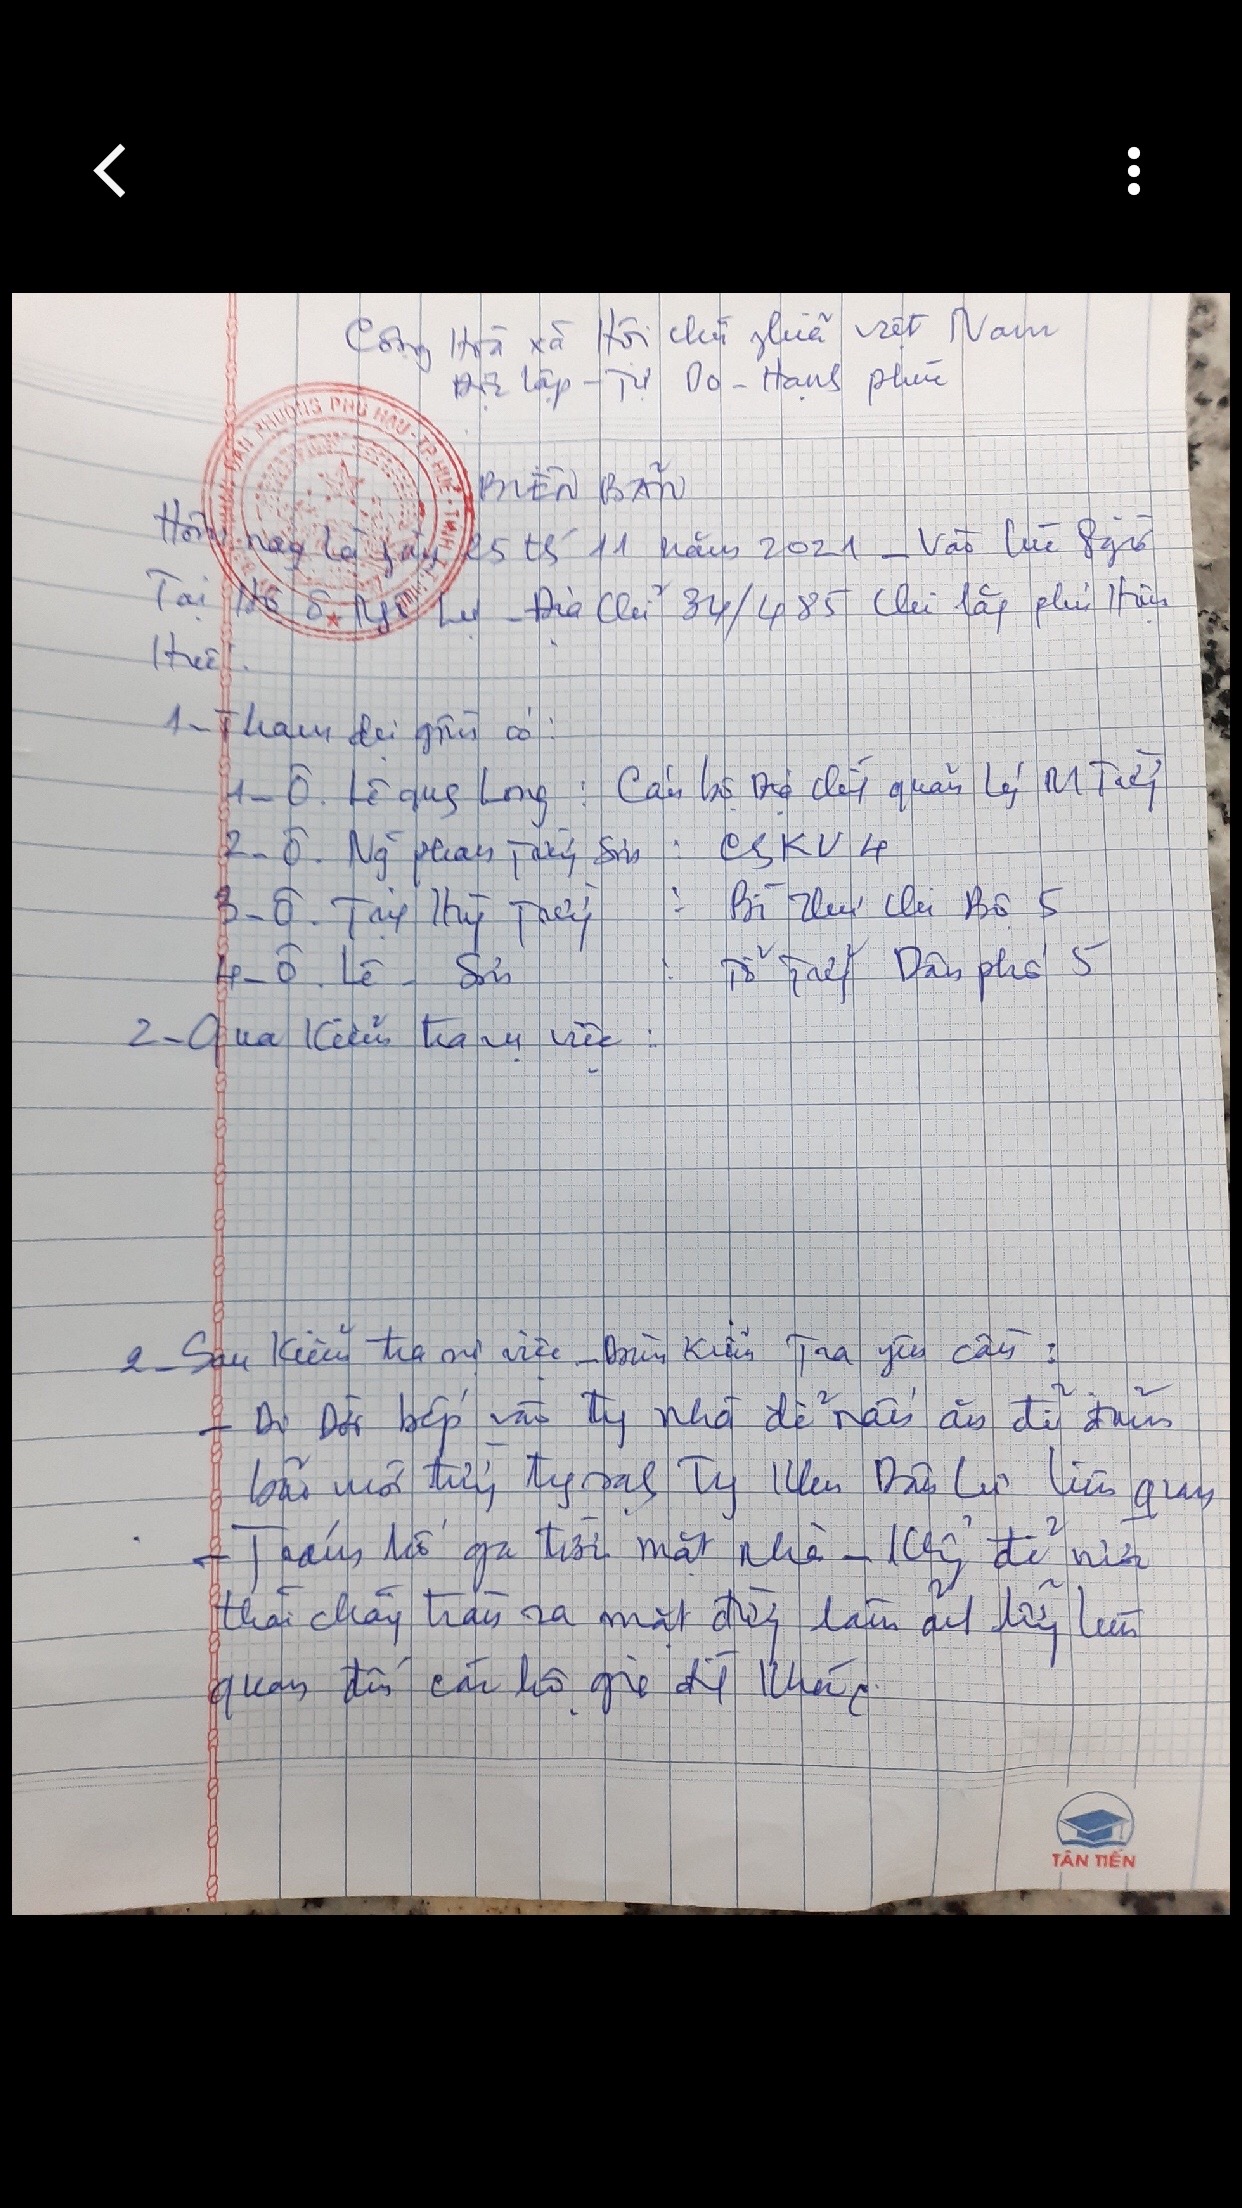 Cộng Hoà xã Hội chủ nghĩa việt Nam
Độc lập - Tự Do - Hạnh phúc
PHƯỜNG PHÚ HẬU - TP HUẾ
BIÊN BẢN
Hôm nay là ngày 25 th 11 năm 2021 - Vào lúc 8 giờ
Tại Hộ Ô. Lự - Địa chỉ 34/485 Chi lăng phú Hậu
Huế.
1- Tham dự gồm có:
1- Ô. Lê Long : Cán bộ Địa chất quản lý M Trường
2- Ô. Ng phan Sơn : CSKV 4
3- Ô. : Bí thư chi Bộ 5
4- Ô. Lê - Sơn : Tổ Trưởng Dân phố 5
2- Qua Kiểm tra vụ việc :
2- Sau Kiểm tra vụ việc - Đoàn Kiểm Tra yêu cầu :
- Di Dời bếp vào nhà để nấu ăn để đảm
bảo môi trường Dân cư liên quan
- Trám hố ga trước mặt nhà - Không để nước
thải chảy tràn ra mặt đường làm ảnh hưởng liên
quan đến các hộ gia đình khác.
TÂN TIẾN